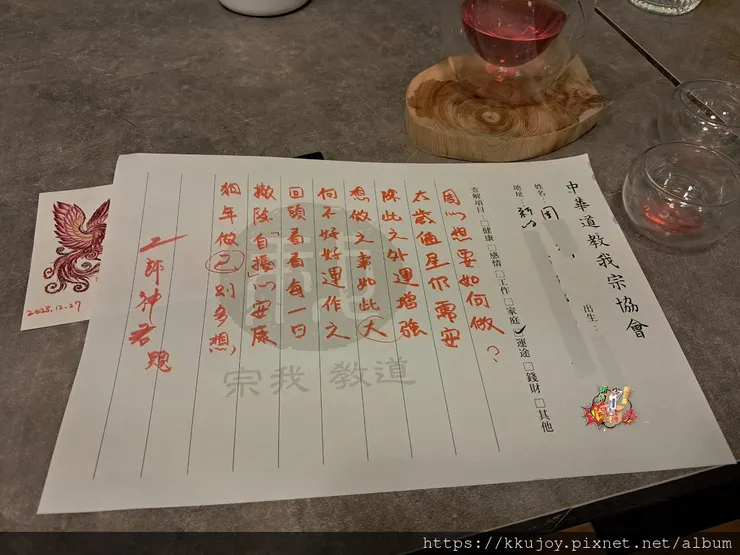 中華道教我宗協會
姓名：周
出生：
地址：新
查解項目：□健康□感情□工作□家庭☑運途□錢財□其他
周心想要如何做？
太歲值星仍需安
除此之外運增強
想做之事如此大
何不好好運作之
回頭看看每一日
撤除「自擾」心安康
狗年做己別多想，
二郎神君題
道教我宗
2025.12.27
https://kkujoy.pixnet.net/album